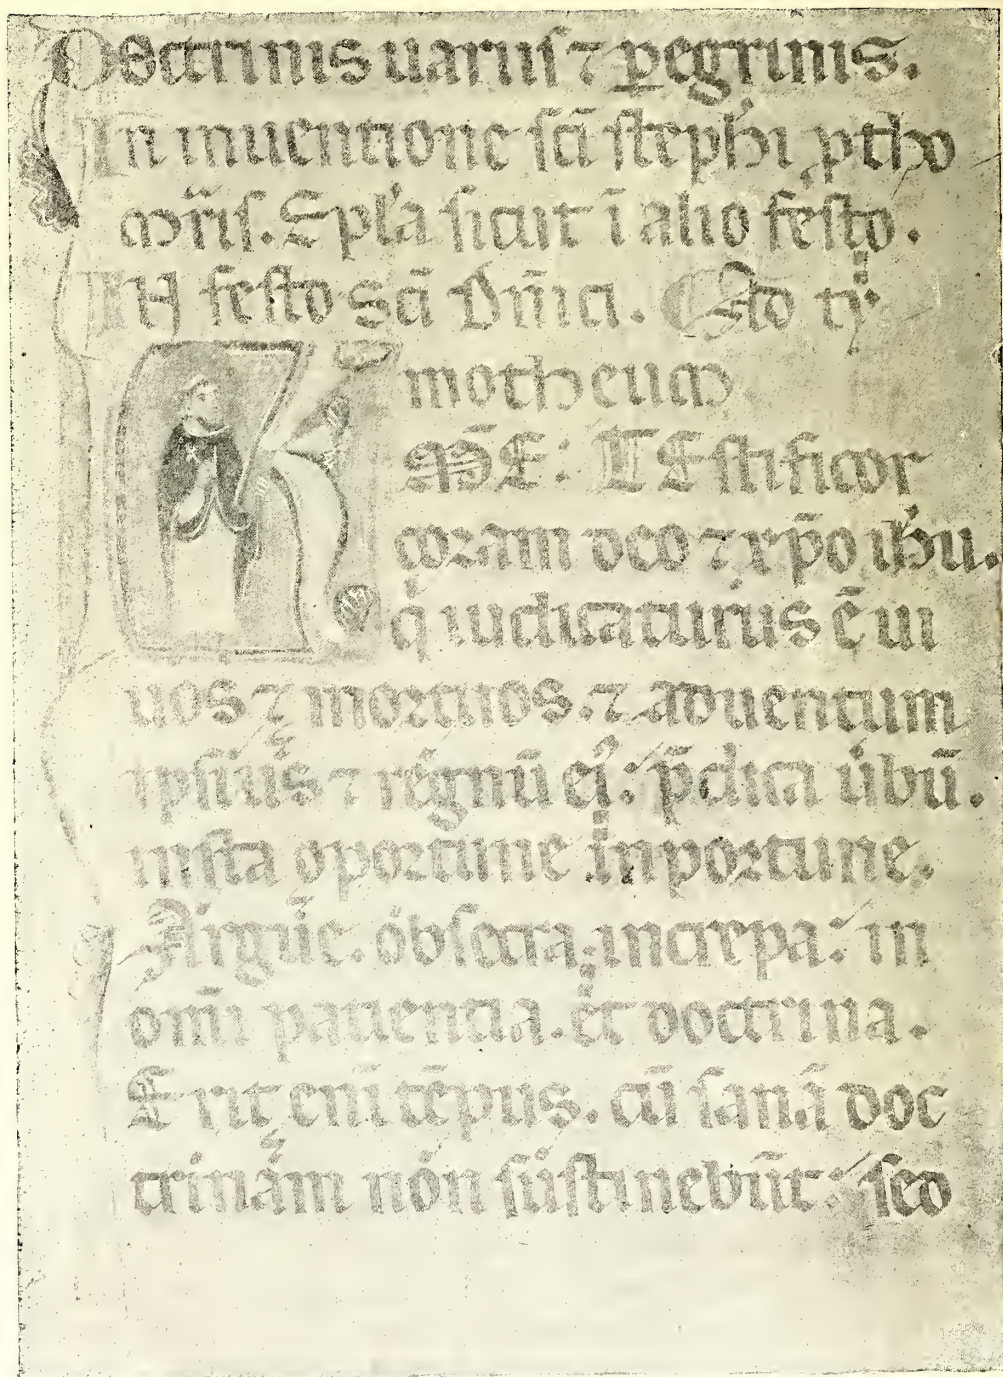 Doctrinis uariis ⁊ peregrinis.
In inuentione sc̄i steph̄i ꝓtho
mr̄is. Epl'a sicut ī alio festo.
IN festo Sc̄i Dn̄ici. Ad ty
motheum.
KM̄E: TEstificor
coram deo ⁊ xp̄o ih̄u.
q̇ iudicaturus ē ui
uos ⁊ mortuos. ⁊ aduentum
ipsius ⁊ regnū ei᾽: p̄dica uerbū.
insta oportune inportune.
Argue. obsecra. increpa: in
omī patientia. et doctrina.
Erit enī tēpus. cū sanā doc
trinam non sustinebūt: sed